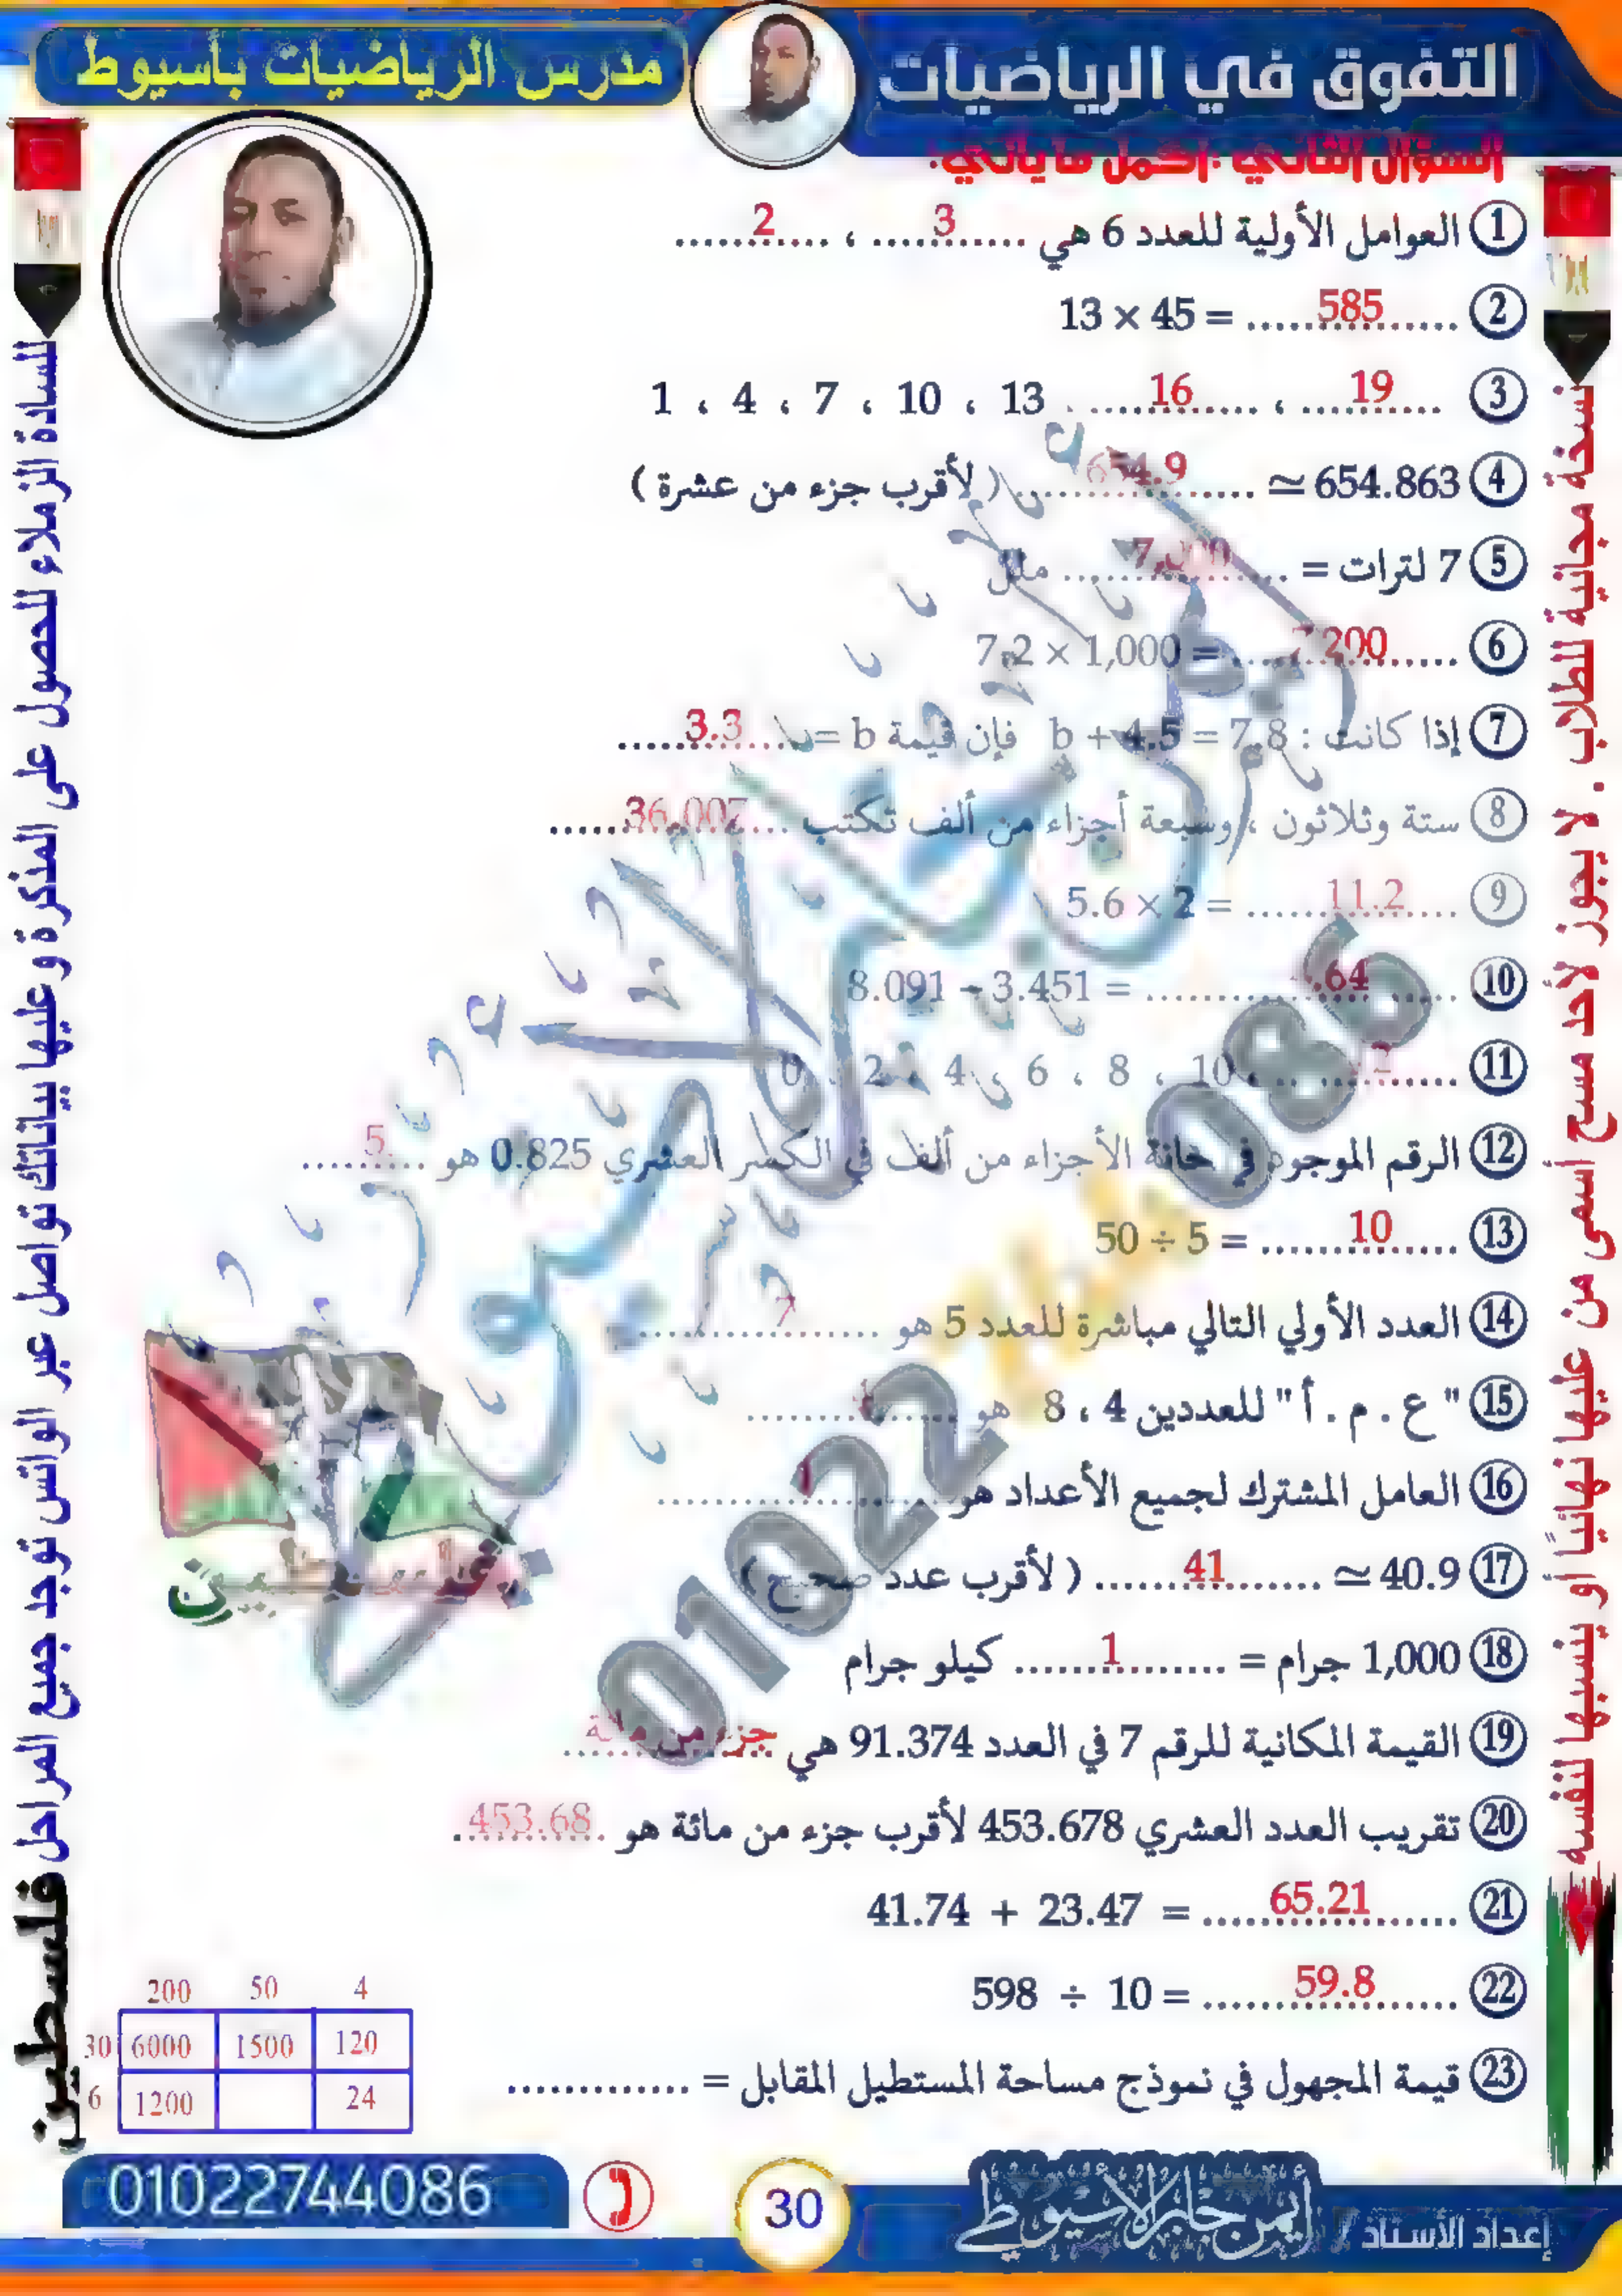 التفوق في الرياضيات
مدرس الرياضيات بأسيوط
السؤال الثاني : اكمل ما يأتي :
1 العوامل الأولية للعدد 6 هي ........... 3 ، ........... 2
2 13 × 45 = ........... 585
3 1 ، 4 ، 7 ، 10 ، 13 ، ........... 16 ، ........... 19
4 654.863 ≃ ........... 654.9 ( لأقرب جزء من عشرة )
5 7 لترات = ........... 7,000 ملل
6 7.2 × 1,000 = ........... 7200
7 إذا كانت : b + 4.5 = 7.8 فإن قيمة b = ........... 3.3
8 ستة وثلاثون ، وسبعة أجزاء من ألف تكتب ........... 36.007
9 5.6 × 2 = ........... 11.2
10 8.091 − 3.451 = ........... .64
11 0 ، 2 ، 4 ، 6 ، 8 ، 10 ، ...........
12 الرقم الموجود في خانة الأجزاء من ألف في الكسر العشري 0.825 هو ........... 5
13 50 ÷ 5 = ........... 10
14 العدد الأولي التالي مباشرة للعدد 5 هو ........... 7
15 " ع . م . أ " للعددين 4 ، 8 هو ...........
16 العامل المشترك لجميع الأعداد هو ........... 1
17 40.9 ≃ ........... 41 ( لأقرب عدد صحيح )
18 1,000 جرام = ........... 1 كيلو جرام
19 القيمة المكانية للرقم 7 في العدد 91.374 هي جزء من مائة
20 تقريب العدد العشري 453.678 لأقرب جزء من مائة هو 453.68
21 41.74 + 23.47 = ........... 65.21
22 598 ÷ 10 = ........... 59.8
23 قيمة المجهول في نموذج مساحة المستطيل المقابل = ...........
200 50 4
30 6000 1500 120
6 1200 24
نسخة مجانية للطلاب . لا يجوز لأحد مسح أسمى من عليها نهائياً أو ينسبها لنفسه
للسادة الزملاء للحصول على المذكرة و عليها بياناتك تواصل عبر الواتس توجد جميع المراحل
فلسطين
فلسطين
أيمن جابر الأسيوطي
01022744086
إعداد الأستاذ / أيمن جابر الأسيوطي
30
01022744086